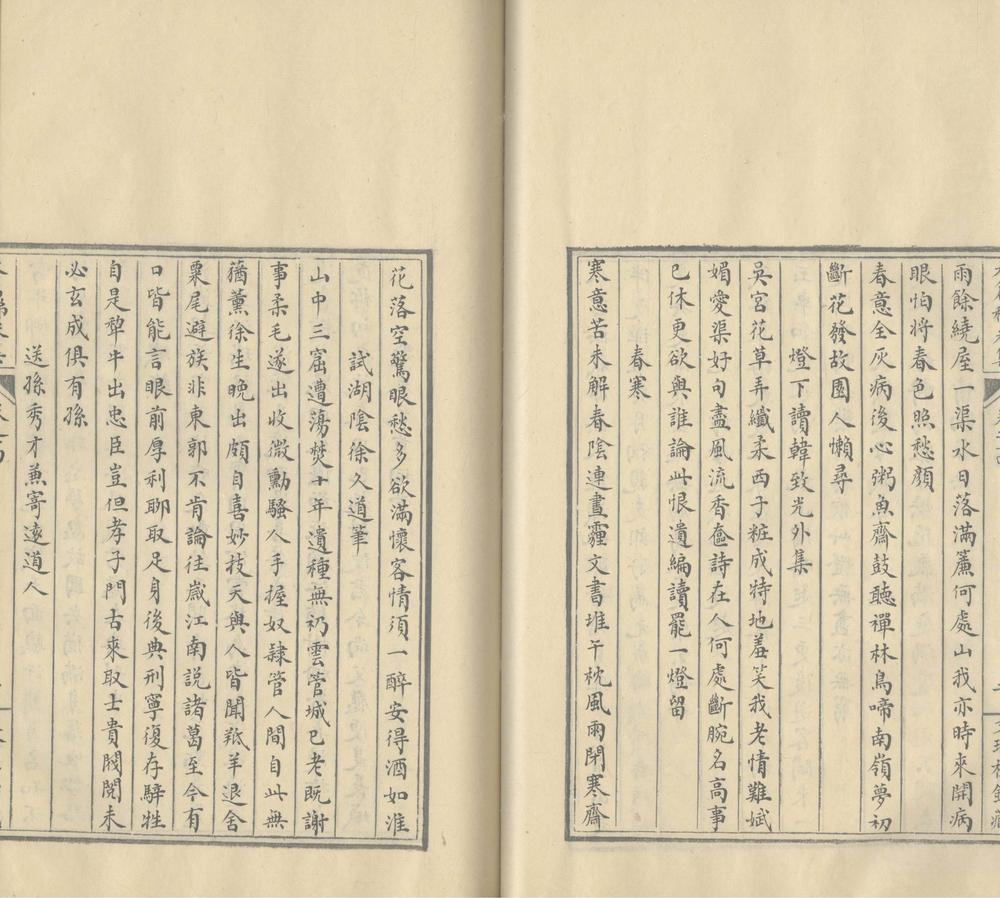 雨餘繞屋一渠水日落滿簾何處山我亦時來開病
眼怕將春色照愁顏
春意全灰病後心粥魚齋鼓聽禪林鳥啼南嶺夢初
斷花發故園人懶尋
燈下讀韓致光外集
吳宮花草弄纖柔西子粧成特地羞笑我老情難斌
媚愛渠好句盡風流香奩詩在人何處斷腕名高事
已休更欲與誰論此恨遺編讀罷一燈留
春寒
寒意苦未解春陰連晝霾文書堆午枕風雨閉寒齋
花落空驚眼愁多欲滿懷客情須一醉安得酒如淮
試湖陰徐久道筆
山中三窟遭蕩焚十年遺種無礽雲管城已老既謝
事柔毛遂出收微勳騷人手握奴隸管人間自此無
蕕薰徐生晚出頗自喜妙技天與人皆聞羝羊退舍
栗尾避族非東郭不肯論往歲江南說諸葛至今有
口皆能言眼前厚利聊取足身後典刑寧復存騂牲
自是犂牛出忠臣豈但孝子門古來取士貴閥閱未
必玄成俱有孫
送孫秀才兼寄遠道人